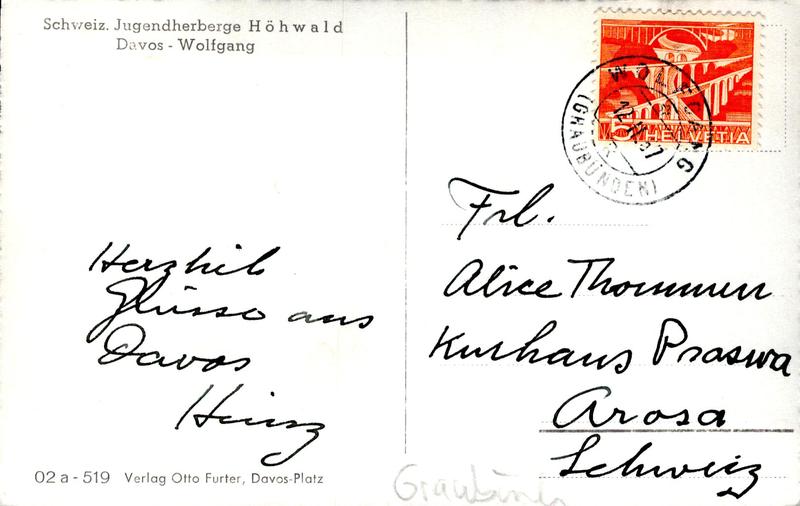 Schweiz. Jugendherberge Höhwald
Davos - Wolfgang
5 HELVETIA
WOLFGANG
(GRAUBÜNDEN)
Herzlich
Grüsse aus
Davos
Heinz
Frl.
Alice Thommen
Kurhaus Praswa
Arosa
Schweiz
02 a - 519 Verlag Otto Furter, Davos-Platz
Graubünden